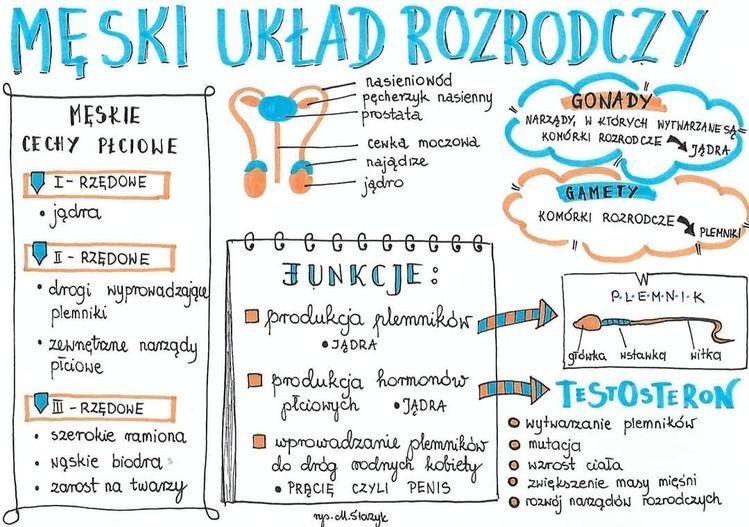 MĘSKI UKŁAD ROZRODCZY
MĘSKIE
CECHY PŁCIOWE
I - RZĘDOWE
• jądra
II - RZĘDOWE
• drogi wyprowadzające
plemniki
• zewnętrzne narządy
płciowe
III - RZĘDOWE
• szerokie ramiona
• wąskie biodra
• zarost na twarzy
nasieniowód
pęcherzyk nasienny
prostata
cewka moczowa
najądrze
jądro
GONADY
NARZĄDY, W KTÓRYCH WYTWARZANE SĄ
KOMÓRKI ROZRODCZE
JĄDRA
GAMETY
KOMÓRKI ROZRODCZE
PLEMNIKI
FUNKCJE:
produkcja plemników
• JĄDRA
produkcja hormonów
płciowych • JĄDRA
wprowadzanie plemników
do dróg rodnych kobiety
• PRĄCIE CZYLI PENIS
P•L•E•M•N•I•K
główka wstawka witka
TESTOSTERON
wytwarzanie plemników
mutacja
wzrost ciała
zwiększenie masy mięśni
rozwój narządów rozrodczych
rys. M. Ślązyk